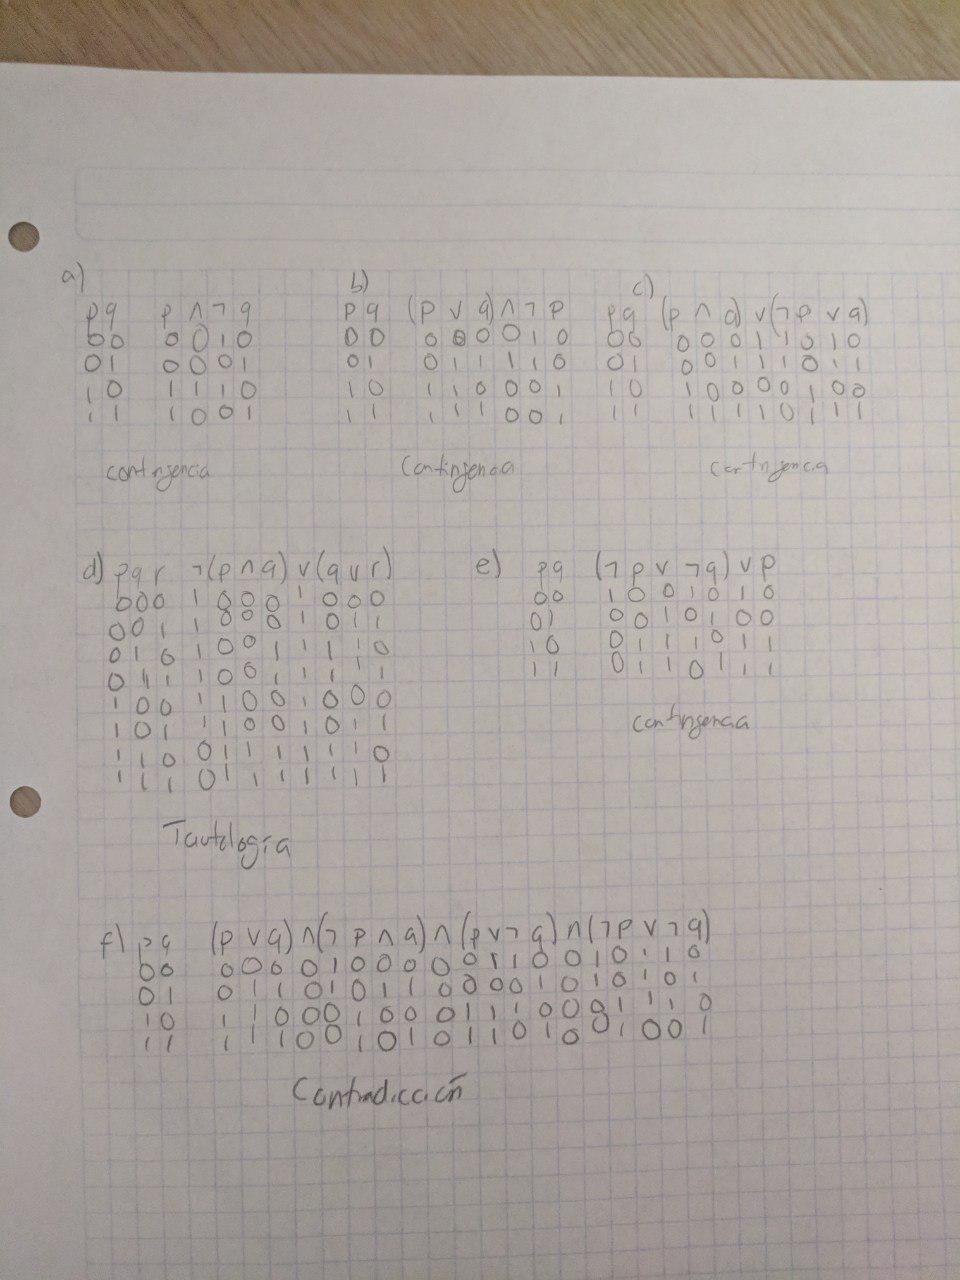 a)
p q p ∧ ¬ q
0 0 0 0 1 0
0 1 0 0 0 1
1 0 1 1 1 0
1 1 1 0 0 1
contingencia
b)
p q (p ∨ q) ∧ ¬ p
0 0 0 0 0 0 1 0
0 1 0 1 1 1 1 0
1 0 1 1 0 0 0 1
1 1 1 1 1 0 0 1
Contingencia
c)
p q (p ∧ q) ∨ (¬ p ∨ q)
0 0 0 0 0 1 1 0 1 0
0 1 0 0 1 1 1 0 1 1
1 0 1 0 0 0 0 1 0 0
1 1 1 1 1 1 0 1 1 1
contingencia
d) p q r ¬ (p ∧ q) ∨ (q ∨ r)
0 0 0 1 0 0 0 1 0 0 0
0 0 1 1 0 0 0 1 0 1 1
0 1 0 1 0 0 1 1 1 1 0
0 1 1 1 0 0 1 1 1 1 1
1 0 0 1 1 0 0 1 0 0 0
1 0 1 1 1 0 0 1 0 1 1
1 1 0 0 1 1 1 1 1 1 0
1 1 1 0 1 1 1 1 1 1 1
Tautología
e) p q (¬ p ∨ ¬ q) ∨ p
0 0 1 0 0 1 0 1 0
0 1 0 0 1 0 1 0 0
1 0 0 1 1 1 0 1 1
1 1 0 1 1 0 1 1 1
contingencia
f) p q (p ∨ q) ∧ (¬ p ∧ q) ∧ (p ∨ ¬ q) ∧ (¬ p ∨ ¬ q)
0 0 0 0 0 0 1 0 0 0 0 0 1 1 0 0 1 0 1 1 0
0 1 0 1 1 0 1 0 1 1 0 0 0 0 1 0 1 0 1 0 1
1 0 1 1 0 0 0 1 0 0 0 1 1 1 0 0 0 1 1 1 0
1 1 1 1 1 0 0 1 0 1 0 1 1 0 1 0 0 1 0 0 1
Contradicción